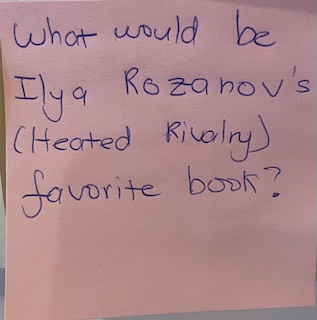 What would be
Ilya Rozanov's
(Heated Rivalry)
favorite book?